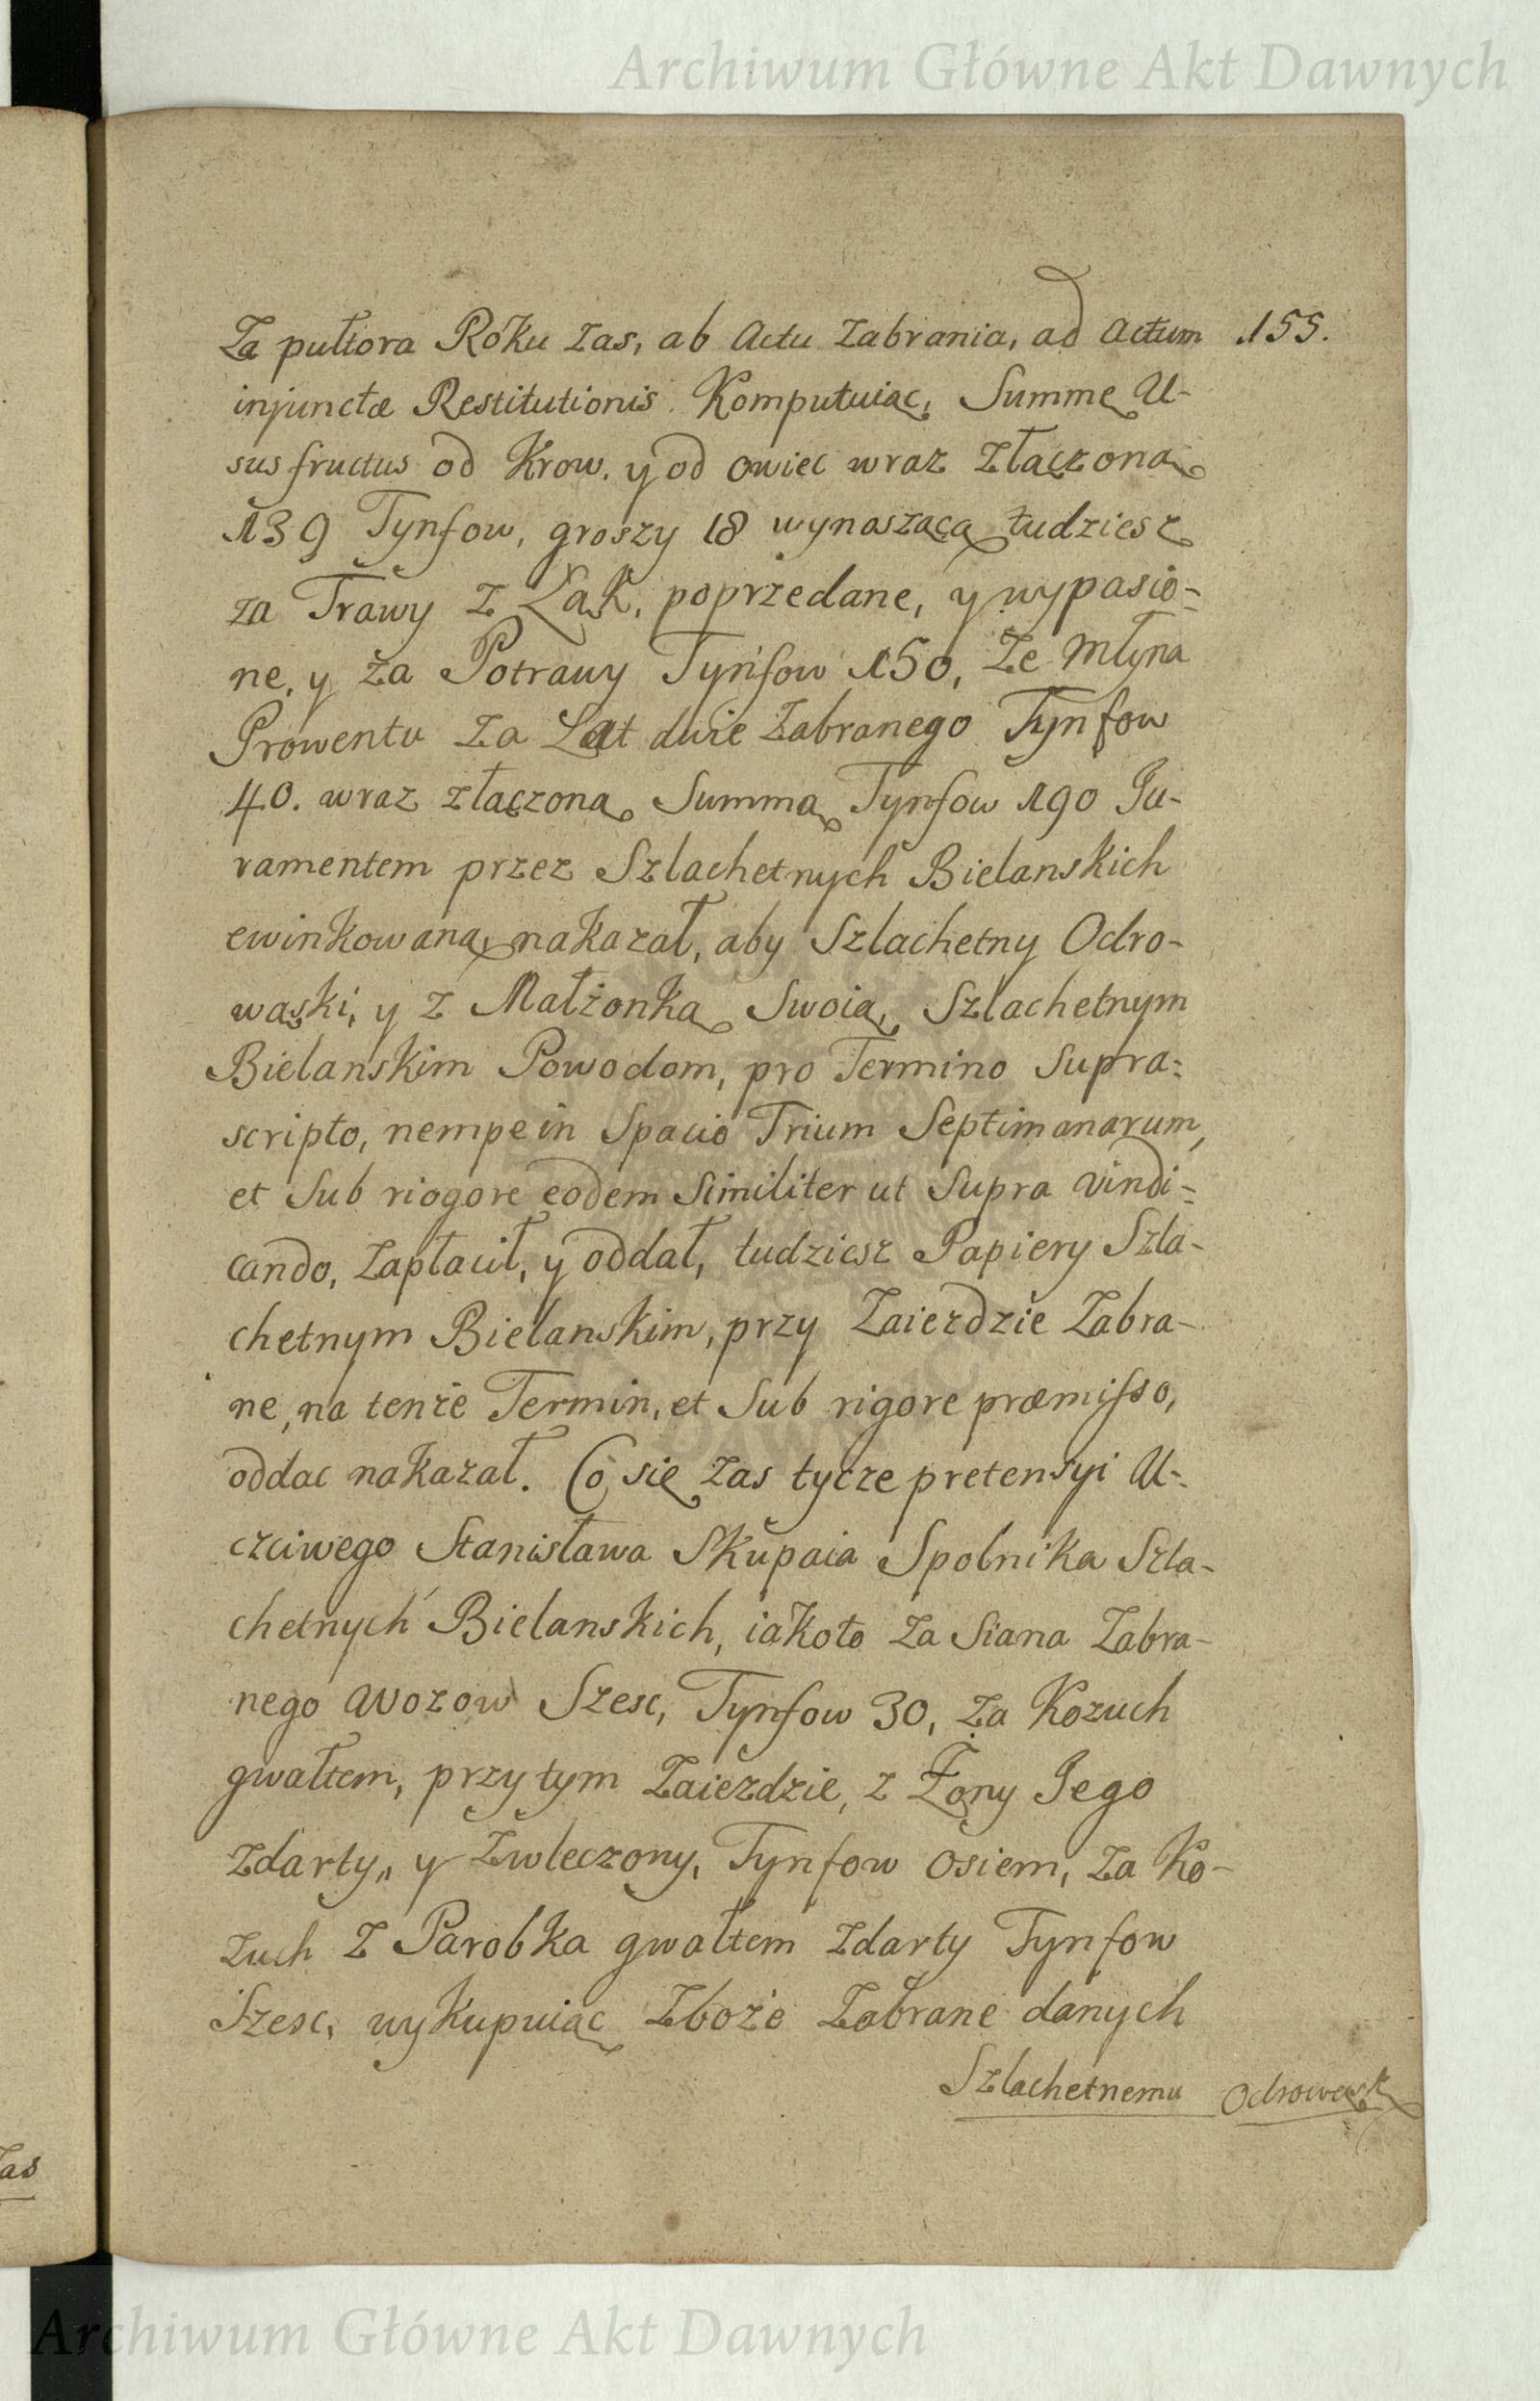 Archiwum Główne Akt Dawnych
155.
Za pułtora Roku zas, ab Actu zabrania, ad Actum
injunctæ Restitutionis Komputuiąc, Summę U-
sus fructus od Krow, y od owiec wraz złączoną
139 Tynfow, groszy 18 wynaszaćą tudziesz
za Trawy z Łąk, poprzedane, y wypasio=
ne, y za Potrawy Tynfow 150, Ze Młyna
Prowentu za Lat dwie Zabranego Tynfow
40. wraz złączoną Summą Tynfow 190 Ju-
ramentem przez Szlachetnych Bielanskich
ewinkowaną nakazał, aby Szlachetny Odro-
wąski, y z Małżonką Swoią, Szlachetnym
Bielanskim Powodom, pro Termino Supra=
scripto, nempe in Spacio Trium Septimanarum,
et Sub riogore eodem Similiter ut Supra vindi=
cando, Zapłacił, y oddał, tudziesz Papiery Szla-
chetnym Bielanskim, przy Zaiezdzie Zabra-
ne, na tenże Termin, et Sub rigore præmisso,
oddac nakazał. Co się zas tycze pretensyi U-
czciwego Stanisława Skupaia Spolnika Szla-
chetnych Bielanskich, iakoto za Siana Zabra-
nego wozow Szesc, Tynfow 30, za Kozuch
gwałtem, przy tym Zaiezdzie, z Żony Jego
zdarty,, y Zwleczony, Tynfow osiem, za Ko-
zuch z Parobka gwałtem zdarty Tynfow
Szesc, wykupuiąc Zboże Zabrane danych
Szlachetnemu Odrowąsk
zas
Archiwum Główne Akt Dawnych